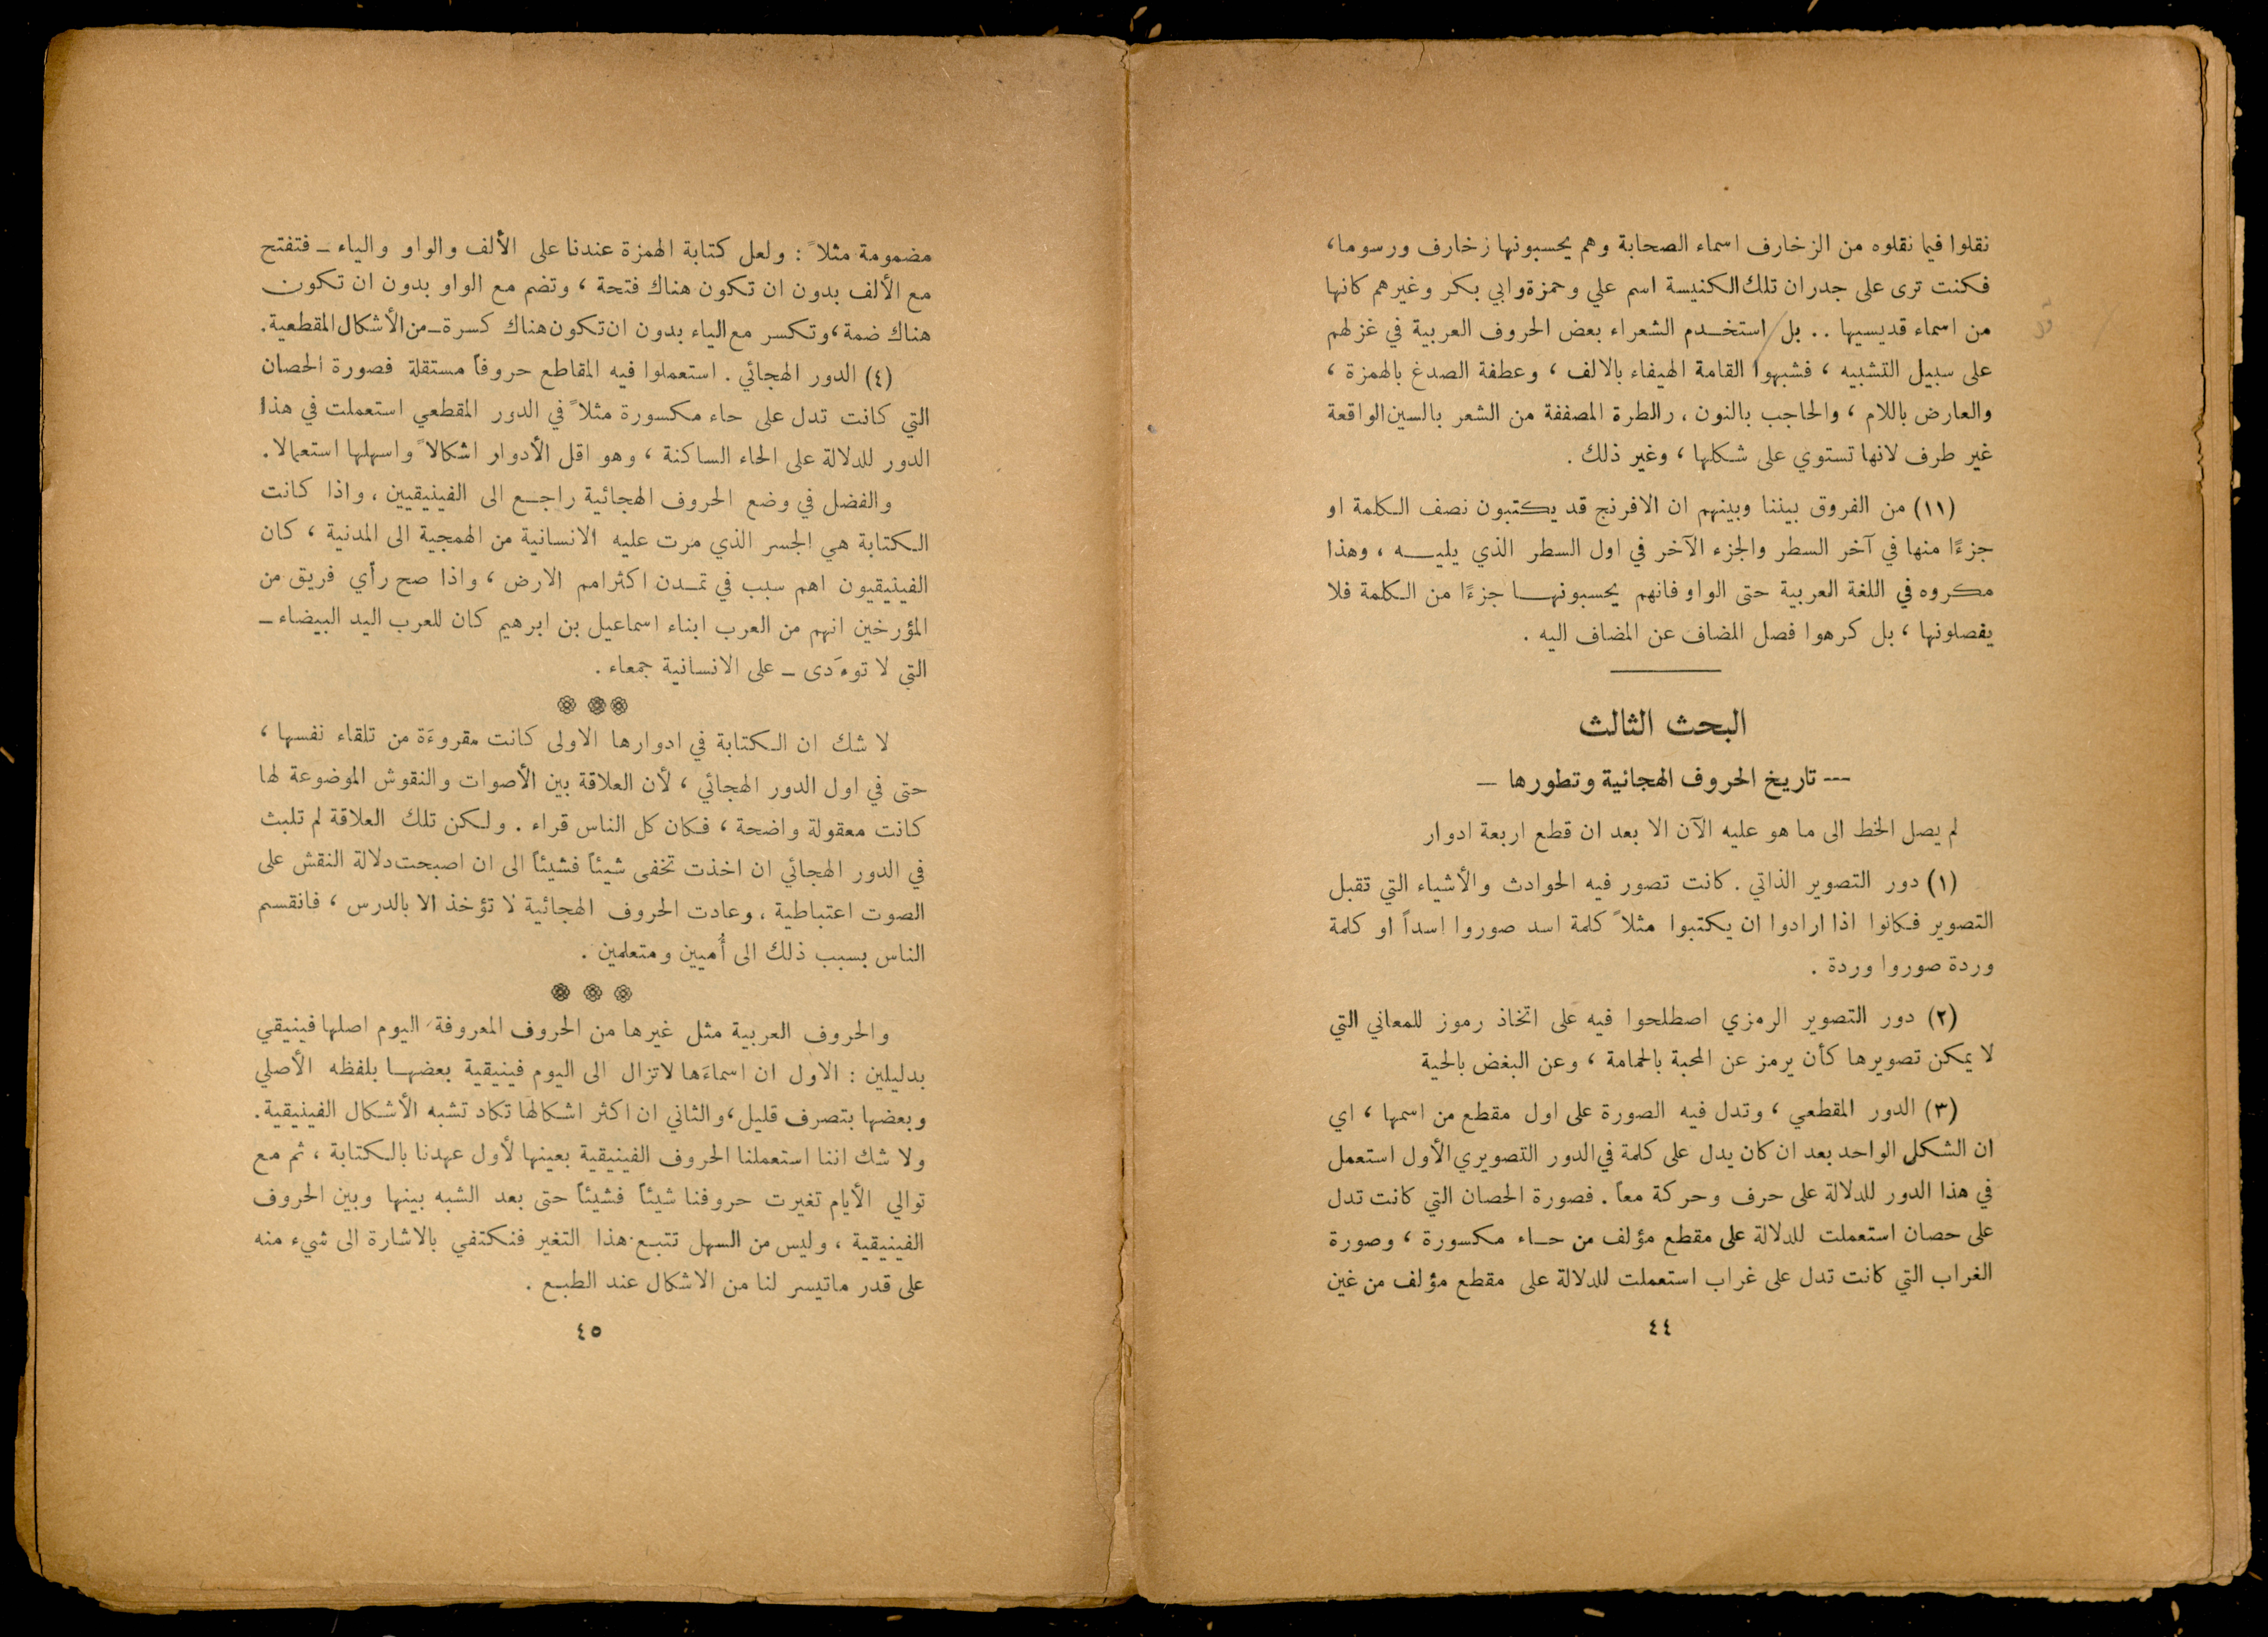 نقلوا فيما نقلوه من الزخارف اسماء الصحابة وهم يحسبونها زخارف ورسوما،
فكنت ترى على جدران تلك الكنيسة اسم علي وحمزة وابي بكر وغيرهم كانها
من اسماء قديسيها .. بل استخدم الشعراء بعض الحروف العربية في غزلهم
على سبيل التشبيه ، فشبهوا القامة الهيفاء بالالف ، وعطفة الصدغ بالهمزة ،
والعارض باللام ، والحاجب بالنون ، والطرة المصففة من الشعر بالسين الواقعة
غير طرف لانها تستوي على شكلها ، وغير ذلك .
(١١) من الفروق بيننا وبينهم ان الافرنج قد يكتبون نصف الكلمة او
جزءًا منها في آخر السطر والجزء الآخر في اول السطر الذي يليه ، وهذا
مكروه في اللغة العربية حتى الواو فانهم يحسبونها جزءًا من الكلمة فلا
يفصلونها ، بل كرهوا فصل المضاف عن المضاف اليه .
البحث الثالث
--- تاريخ الحروف الهجائية وتطورها —
لم يصل الخط الى ما هو عليه الآن الا بعد ان قطع اربعة ادوار
(١) دور التصوير الذاتي . كانت تصور فيه الحوادث والأشياء التي تقبل
التصوير فكانوا اذا ارادوا ان يكتبوا مثلاً كلمة اسد صوروا اسداً او كلمة
وردة صوروا وردة .
(٢) دور التصوير الرمزي اصطلحوا فيه على اتخاذ رموز للمعاني التي
لا يمكن تصويرها كأن يرمز عن المحبة بالحمامة ، وعن البغض بالحية
(٣) الدور المقطعي ، وتدل فيه الصورة على اول مقطع من اسمها ، اي
ان الشكل الواحد بعد ان كان يدل على كلمة في الدور التصويري الأول استعمل
في هذا الدور للدلالة على حرف وحركة معاً . فصورة الحصان التي كانت تدل
على حصان استعملت للدلالة على مقطع مؤلف من حاء مكسورة ، وصورة
الغراب التي كانت تدل على غراب استعملت للدلالة على مقطع مؤلف من غين
٤٤
مضمومة مثلاً : ولعل كتابة الهمزة عندنا على الألف والواو والياء — فتفتح
مع الألف بدون ان تكون هناك فتحة ، وتضم مع الواو بدون ان تكون
هناك ضمة، وتكسر مع الياء بدون ان تكون هناك كسرة — من الأشكال المقطعية.
(٤) الدور الهجائي . استعملوا فيه المقاطع حروفاً مستقلة فصورة الحصان
التي كانت تدل على حاء مكسورة مثلاً في الدور المقطعي استعملت في هذا
الدور للدلالة على الحاء الساكنة ، وهو اقل الأدوار اشكالاً واسهلها استعمالا .
والفضل في وضع الحروف الهجائية راجع الى الفينيقيين ، واذا كانت
الكتابة هي الجسر الذي مرت عليه الانسانية من الهمجية الى المدنية ، كان
الفينيقيون اهم سبب في تمدن اكثر امم الارض ، واذا صح رأي فريق من
المؤرخين انهم من العرب ابناء اسماعيل بن ابرهيم كان للعرب اليد البيضاء —
التي لا توءَدى — على الانسانية جمعاء .
لا شك ان الكتابة في ادوارها الاولى كانت مقروءَة من تلقاء نفسها ،
حتى في اول الدور الهجائي ، لأن العلاقة بين الأصوات والنقوش الموضوعة لها
كانت معقولة واضحة ، فكان كل الناس قراء . ولكن تلك العلاقة لم تلبث
في الدور الهجائي ان اخذت تخفى شيئاً فشيئاً الى ان اصبحت دلالة النقش على
الصوت اعتباطية ، وعادت الحروف الهجائية لا تؤخذ الا بالدرس ، فانقسم
الناس بسبب ذلك الى أُميين ومتعلمين .
والحروف العربية مثل غيرها من الحروف المعروفة اليوم اصلها فينيقي
بدليلين : الاول ان اسماءَها لاتزال الى اليوم فينيقية بعضها بلفظه الأصلي
وبعضها بتصرف قليل، والثاني ان اكثر اشكالها تكاد تشبه الأشكال الفينيقية.
ولا شك اننا استعملنا الحروف الفينيقية بعينها لأول عهدنا بالكتابة ، ثم مع
توالي الأيام تغيرت حروفنا شيئاً فشيئاً حتى بعد الشبه بينها وبين الحروف
الفينيقية ، وليس من السهل تتبع هذا التغير فنكتفي بالاشارة الى شيء منه
على قدر ماتيسر لنا من الاشكال عند الطبع .
٤٥